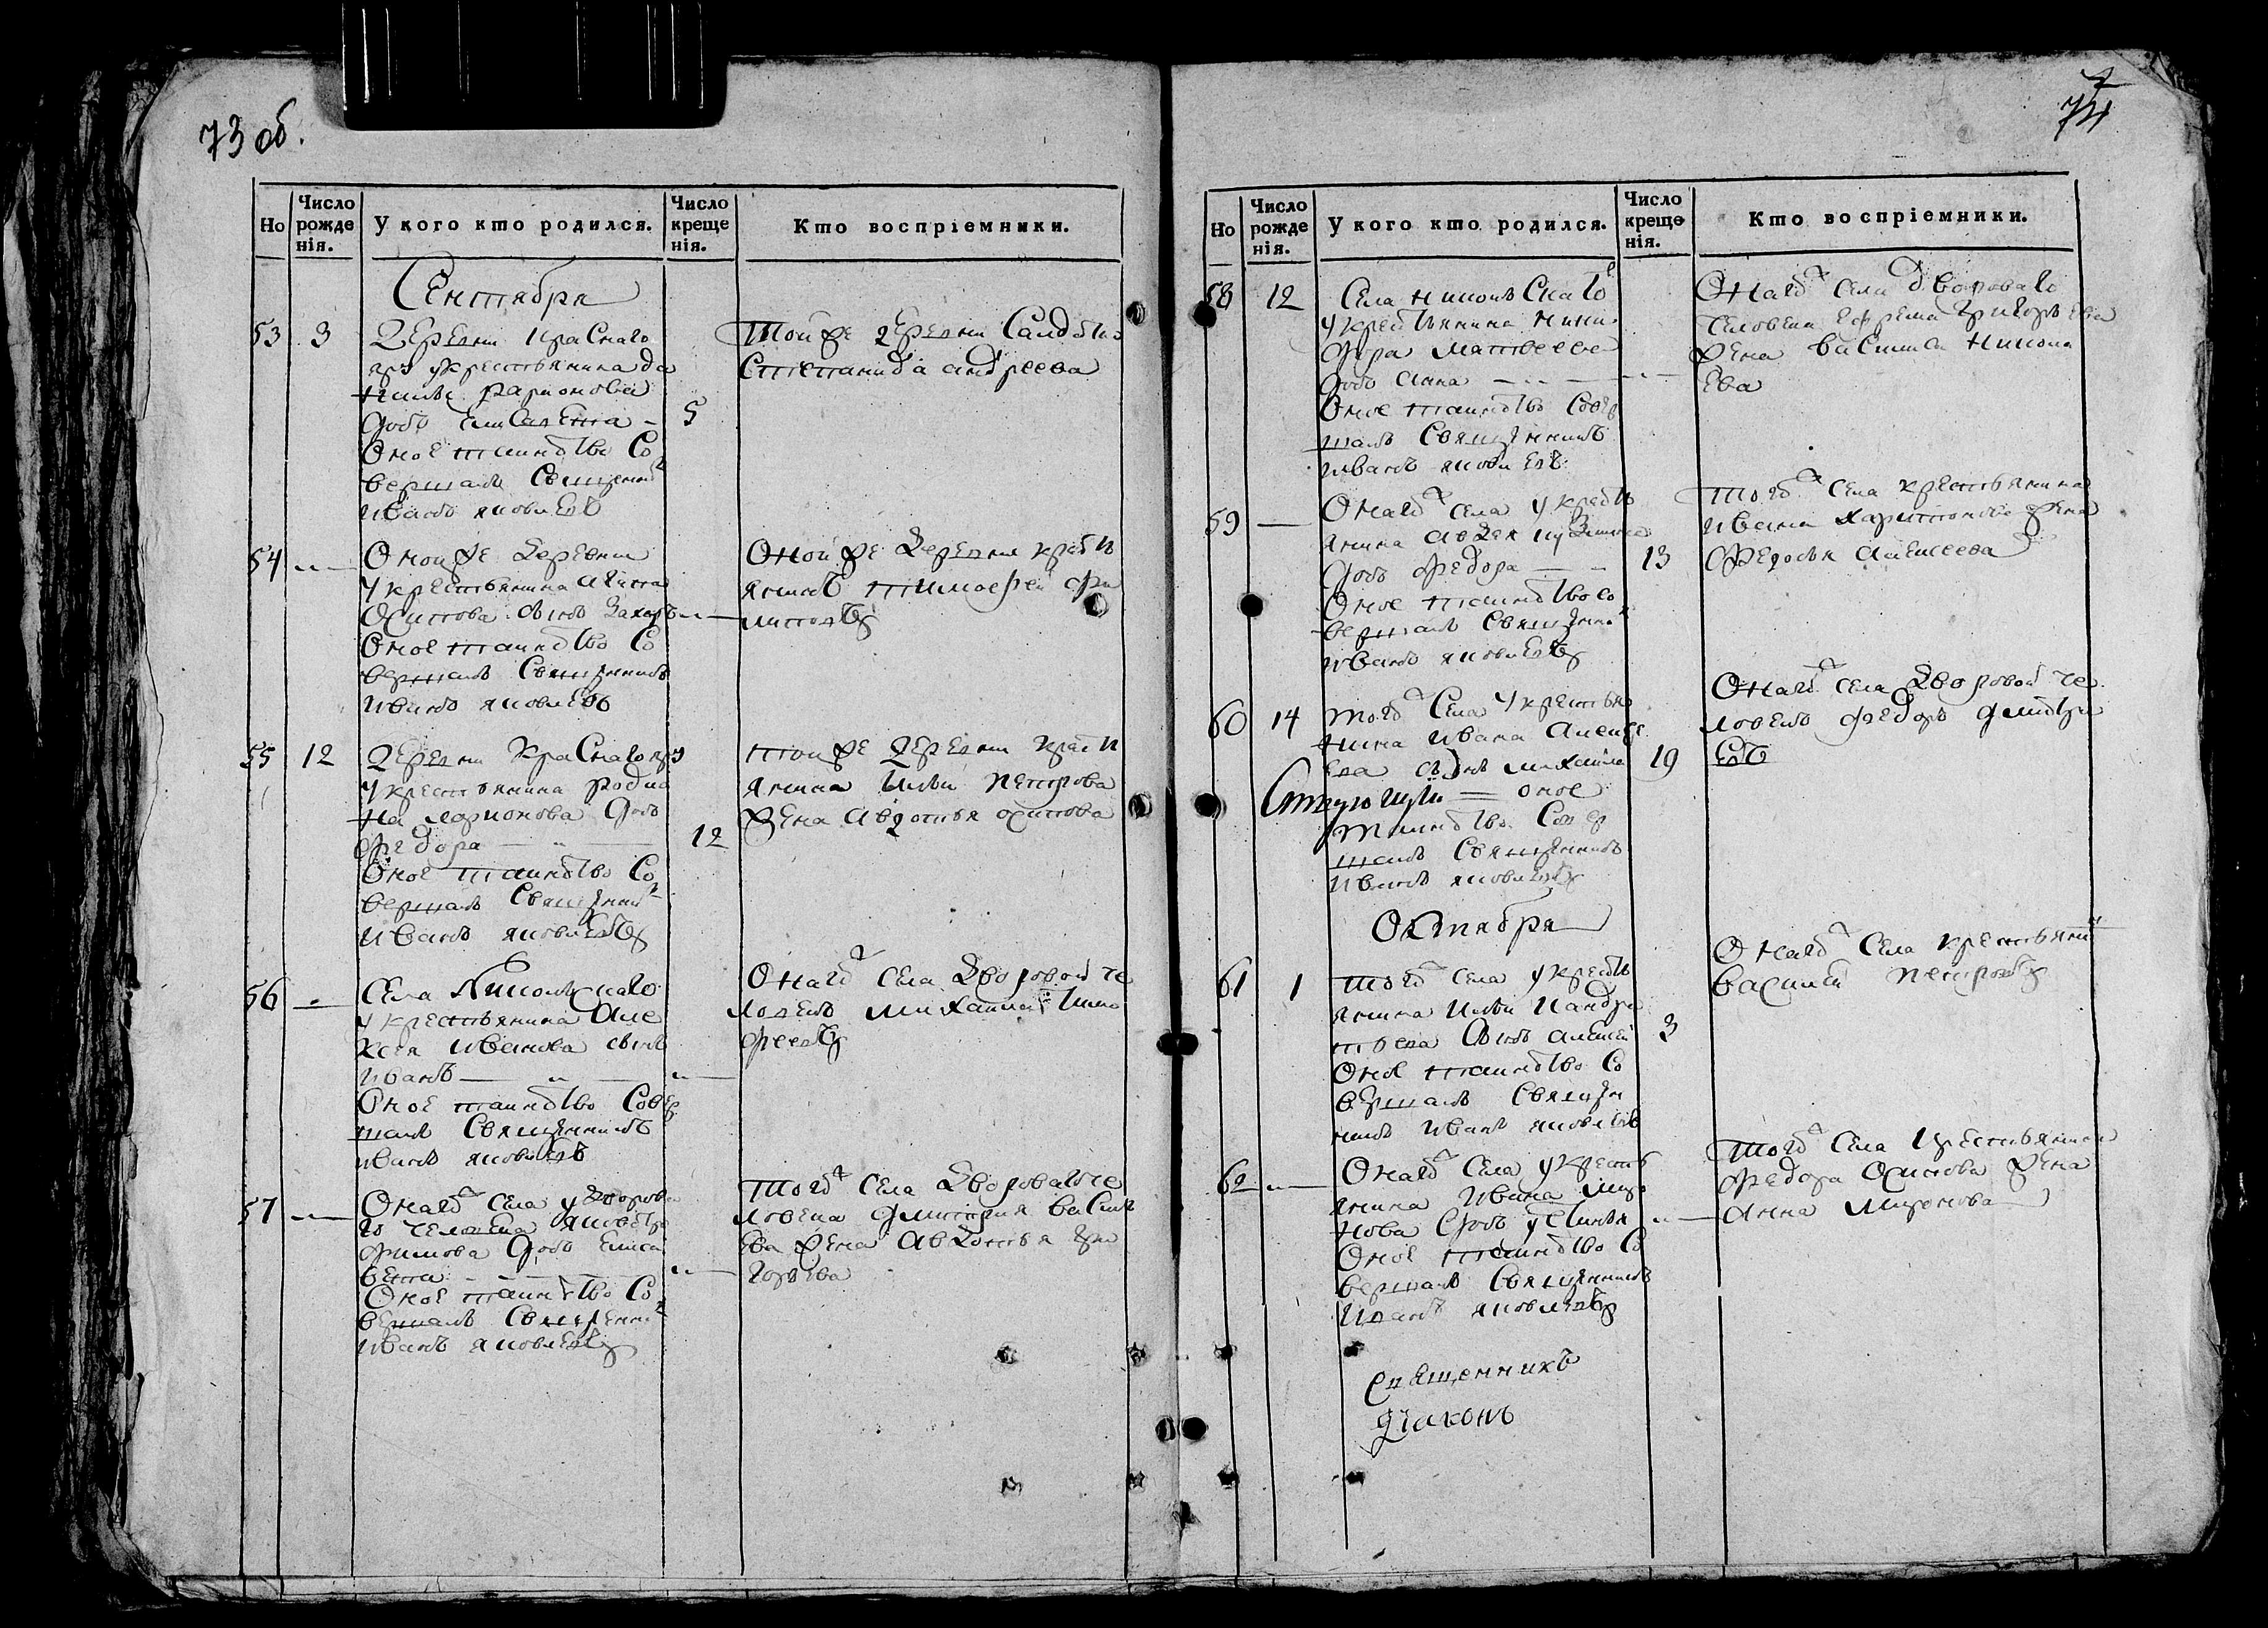 73 об.
Но
Число рожде нія.
У кого кто родился.
Число креще нія.
Кто воспріемники.
Сентября
53 3 Деревни Краснаго
яру укрестьянина Да
нилы Ларионова
дочь Елисавета – 5
Оное таинство Со
вершалъ Священни
Иванъ Яковлевъ
Тойже деревни Салдатка
Степанида андреева
54 Онойже деревни
укрестьянина
Осипова сынъ Захаръ
Оное таинство Со
вершалъ Священникъ
Иванъ Яковлевъ
Онойже деревни крестъ
янинъ тимофей фи
липовъ
55 12 Деревни Краснаго яру
укрестьянина Родио
на ларионова дочь
федора 12
Оное таинство Со
вершалъ Священни
Иванъ Яковлевъ
тойже деревни крестъ
янина Ильи петрова
жена Авдотья осипова
56 Села Никольскаго
укрестьянина Але
ксея Иванова сынъ
Иванъ
Оное таинство Совер
шалъ Священникъ
иванъ яковлевъ
Онагож села дворовой че
ловекъ михаила тимо
феевъ
57 Онагож села удворова
го человека Якова
фимова дочь Елиса
вета
Оное таинство Со
вершалъ Священни
иванъ яковлевъ
Тогож села дворова че
ловека дмитрия василь
ева жена Авдотья гри
горьева
74
Но
Число рожде нія.
У кого кто родился.
Число креще нія.
Кто воспріемники.
58 12 Села никольскаго
укрестьянина ники
фора матвеева
дочь анна
Оное таинство Совер
шалъ Священникъ
иванъ яковлевъ
Онагож села двороваго
человека ефрема григорьева
жена василиса никола
ева
59 Онагож села укресть
янина авдея
дочь федора 13
Оное таинство со
вершалъ Священни
иванъ яковлевъ
Тогож села крестьянина
ивана харитонова жена
федосья алексеева
60 14 Тогож Села укрестья
нина ивана алексе
ева сынъ михаила 19
оное
таинство Совер
шалъ Священникъ
иванъ яковлевъ
Онагож села дворовой че
ловекъ федоръ дмитри
евъ
Октября
61 1 Тогож села укресть
янина Ильи Кандра
тьева сынъ алексей 3
Оное таинство Со
вершалъ Священ
никъ иванъ яковлевъ
Онагож Села крестьянин
василей петровъ
62 Онагож Села укресть
янина Ивана миро
нова дочь устинья
Оное таинство Со
вершалъ Священникъ
Иванъ яковлевъ
Тогож Села крестьянина
федора Осипова жена
анна миронова
Священникъ
Діаконъ